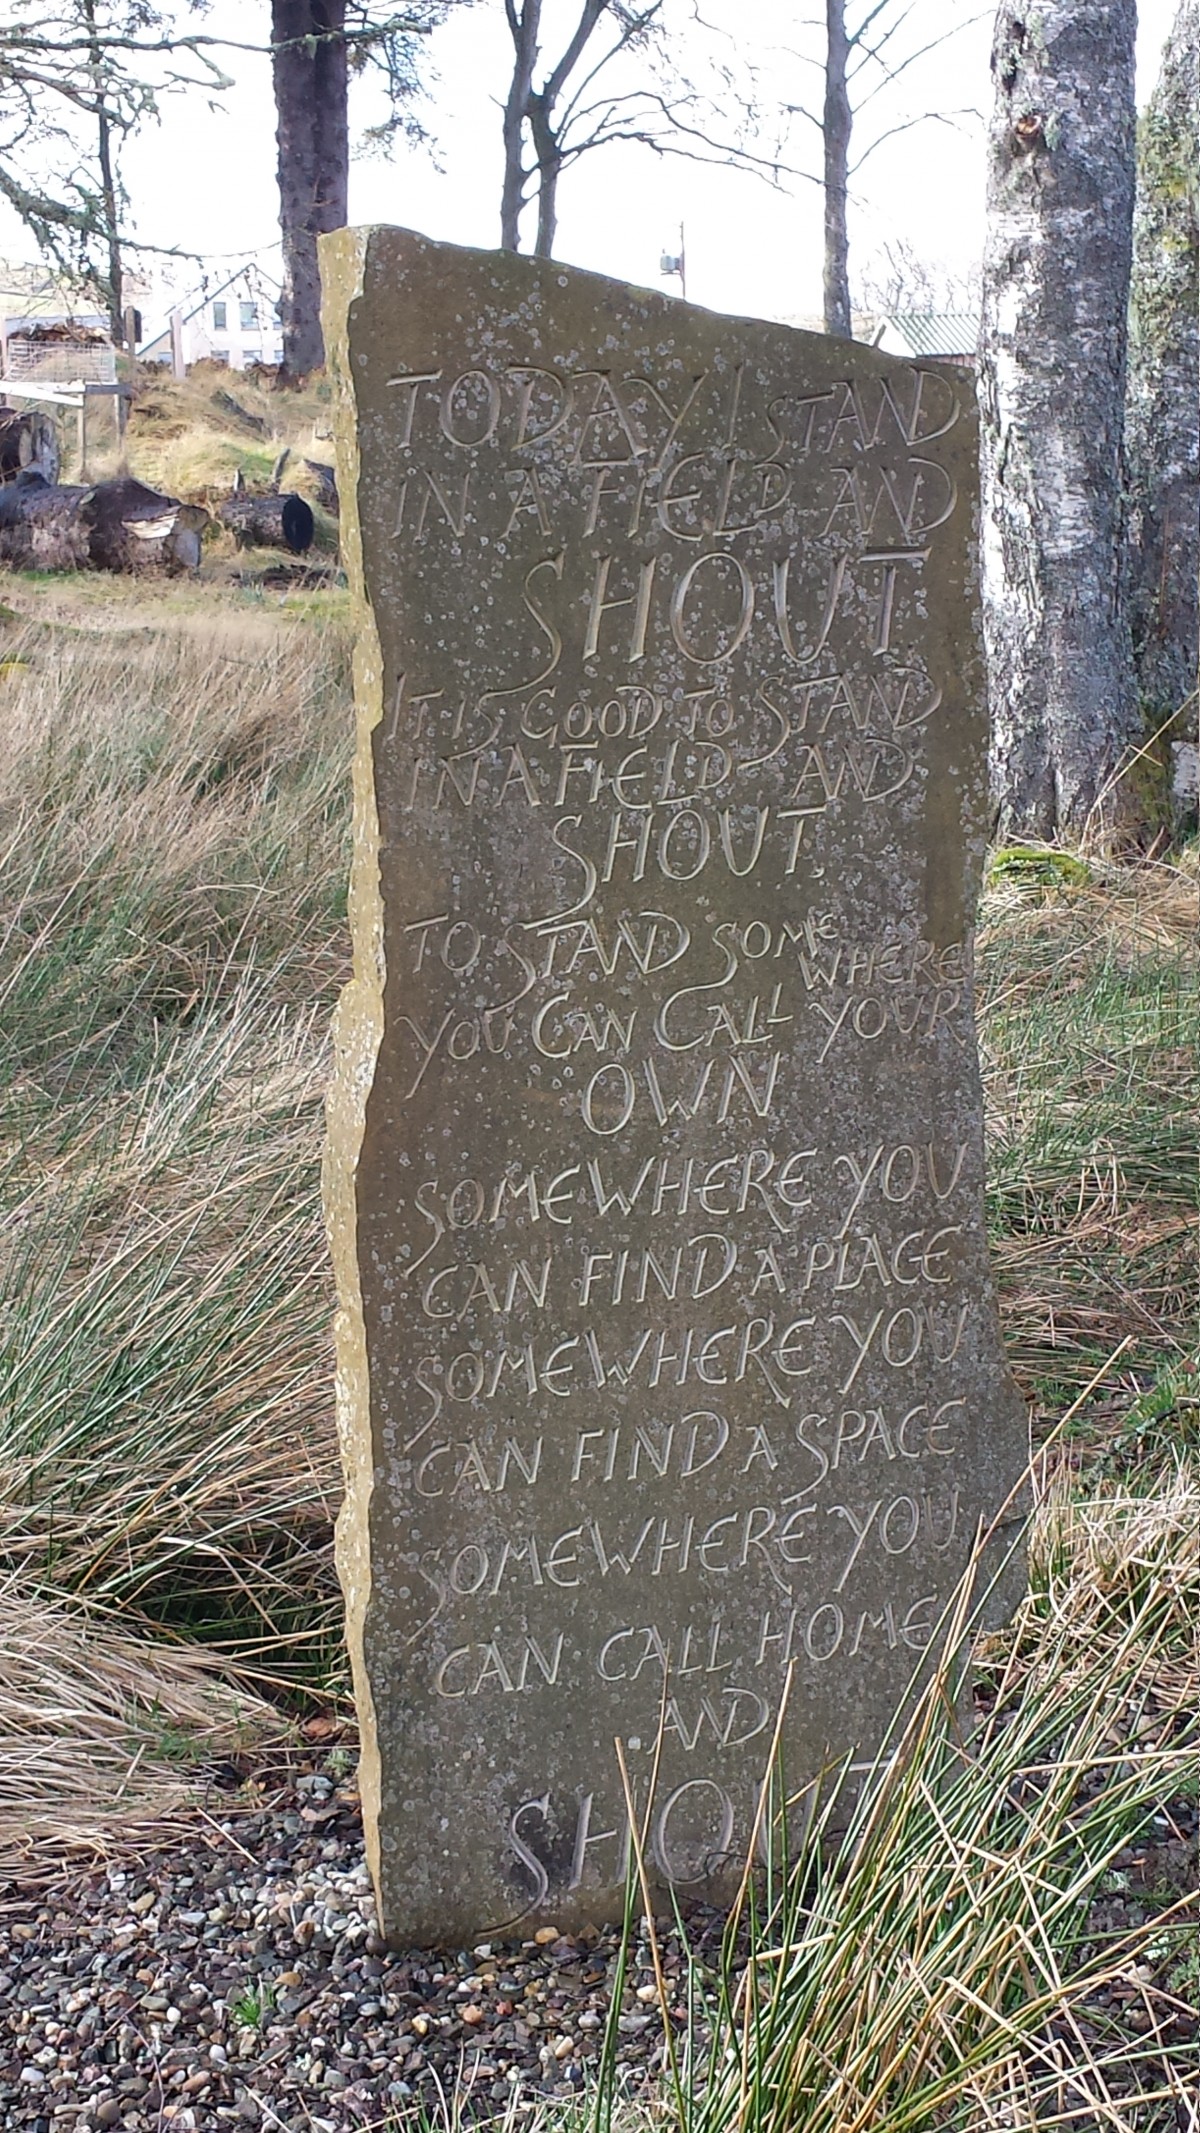 TODAY I STAND
IN A FIELD AND
SHOUT
IT IS GOOD TO STAND
IN A FIELD AND
SHOUT,
TO STAND SOMEWHERE
YOU CAN CALL YOUR
OWN
SOMEWHERE YOU
CAN FIND A PLACE
SOMEWHERE YOU
CAN FIND A SPACE
SOMEWHERE YOU
CAN CALL HOME
AND
SHOUT